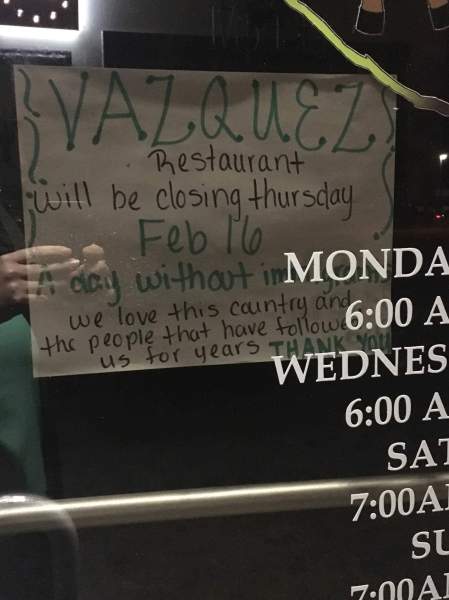 VAZQUEZ
Restaurant
will be closing thursday
Feb 16
A day without
we love this country and
the people that have followe
us for years THANK YOU
MONDA
6:00 A
WEDNES
6:00 A
SAT
7:00A
SU
7:00A